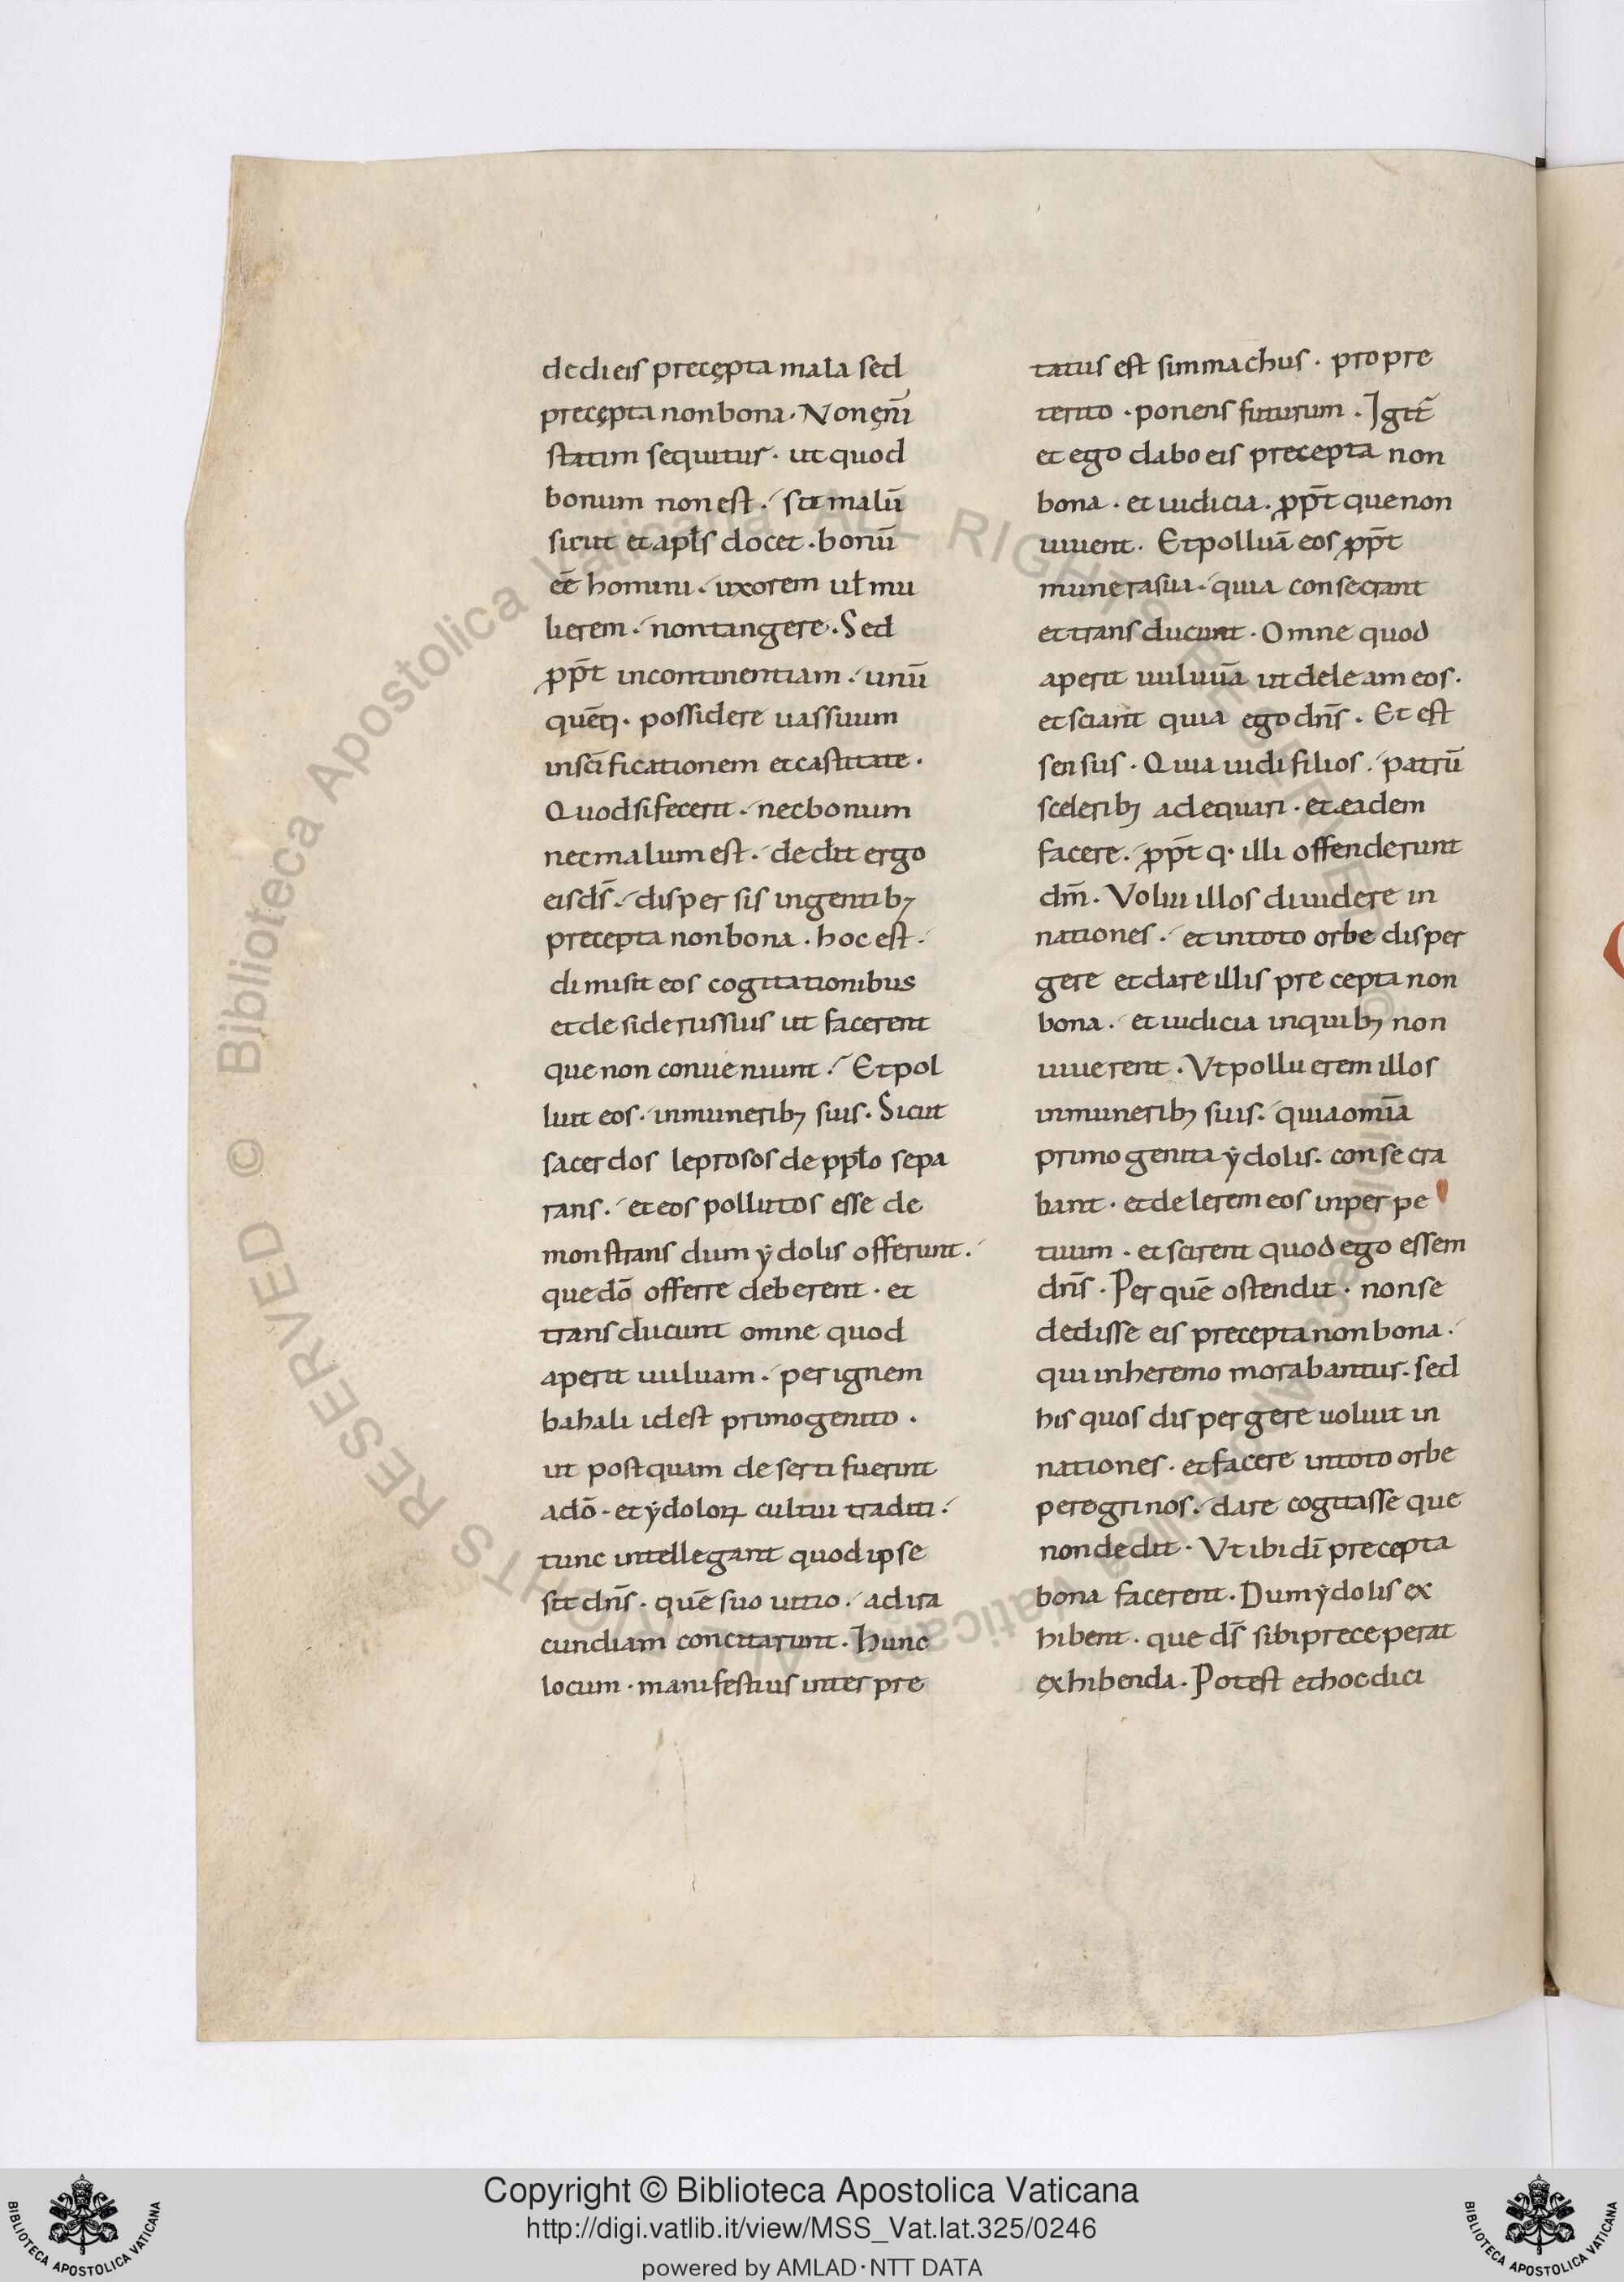 dedi eis precępta mala sed
precępta non bona. Non ęnī
statim sequitur. ut quod
bonum non est. sit malū
sicut et apłs docet. bonū
eē homini. uxorem uł mu
lierem. non tangere. Sed
ꝓpt̄ incontinentiam. unū
quēq;. possidere uas suum
in sc̄ificationem et castitate.
Quod si fecerit. nec bonum
nec malum est. dedit ergo
eis ds̄. dispersis in gentib;
precepta non bona. hoc est.
dimisit eos cogitationibus
et desiderus suis ut facerent
que non conueniunt. Et pol
luit eos. in munerib; suis. Sicut
sacerdos leprosos de ppło sepa
rans. et eos pollutos esse de
monstrans dum ẏdolis offerunt.
que dō offerre deberent. et
transducunt omne quod
aperit uuluam. per ignem
bahali id est primogenito.
ut postquam deserti fuerint
a dō. et ẏdoloꝝ cultui traditi.
tunc intellegant quod ipse
sit dn̄s. quē suo uitio. ad ira
cundiam concitarunt. Hunc
locum. manifestius interpre
tatus est simmachus. pro pre
terito. ponens futurum. Igit̄
et ego dabo eis precepta non
bona. et iudicia. ꝓpt̄ que non
uiuent. Et polluā eos ꝓpt̄
munera sua. quia consecrant
et transducunt. Omne quod
aperit uuluuā ut deleam eos.
et sciant quia ego dn̄s. Et est
sensus. Quia uidi filios. patrū
scelerib; adequari. et eadem
facere. ꝓpt̄ q. illi offenderunt
dm̄. Volui illos diuidere in
nationes. et in toto orbe disper
gere et dare illis precepta non
bona. et iudicia in quib; non
uiuerent. Vt polluerem illos
in munerib; suis. quia omīa
primogenita ẏdolis. consecra
bant. et delerem eos in perpe
tuum. et scirent quod ego essem
dn̄s. Per quē ostendit. non se
dedisse eis precepta non bona.
qui in heremo morabantur. sed
his quos dispergere uoluit in
nationes. et facere in toto orbe
peregrinos. dare cogitasse que
non dedit. Vt ibi dī precepta
bona facerent. Dum ẏdolis ex
hibent. que ds̄ sibi preceperat
exhibenda. Potest et hoc dici
Copyright © Biblioteca Apostolica Vaticana
http://digi.vatlib.it/view/MSS_Vat.lat.325/0246
powered by AMLAD·NTT DATA